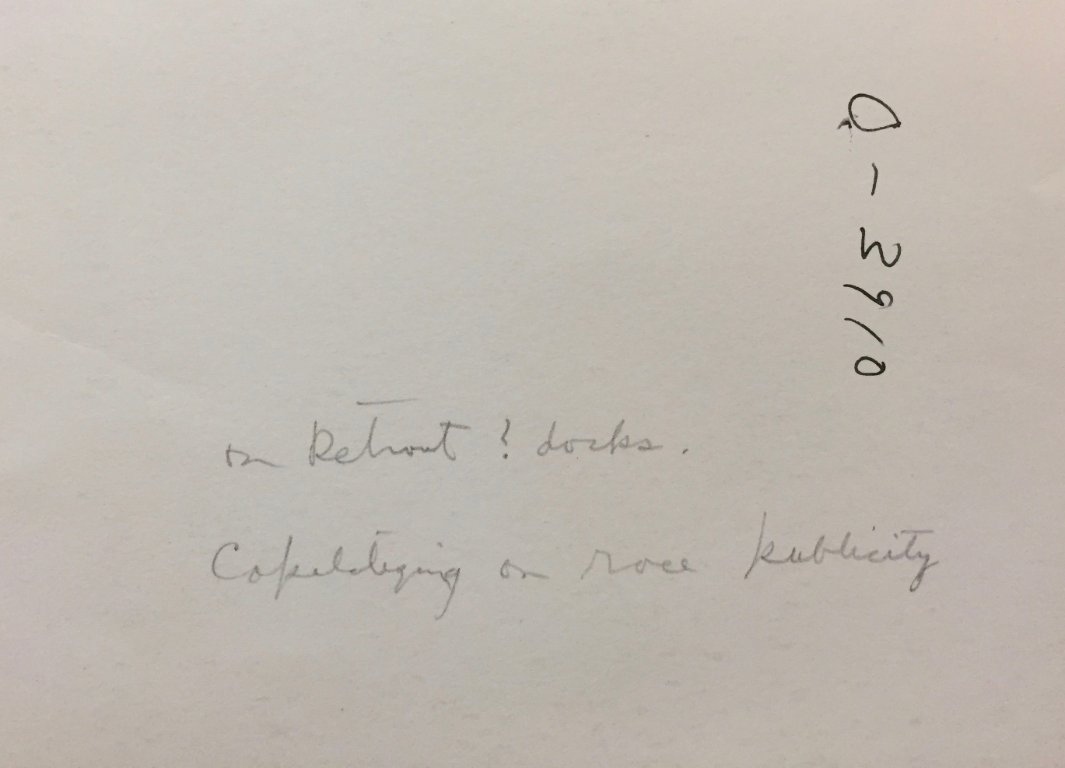 O-3910
on Detroit ? docks.
Capitalizing on race publicity